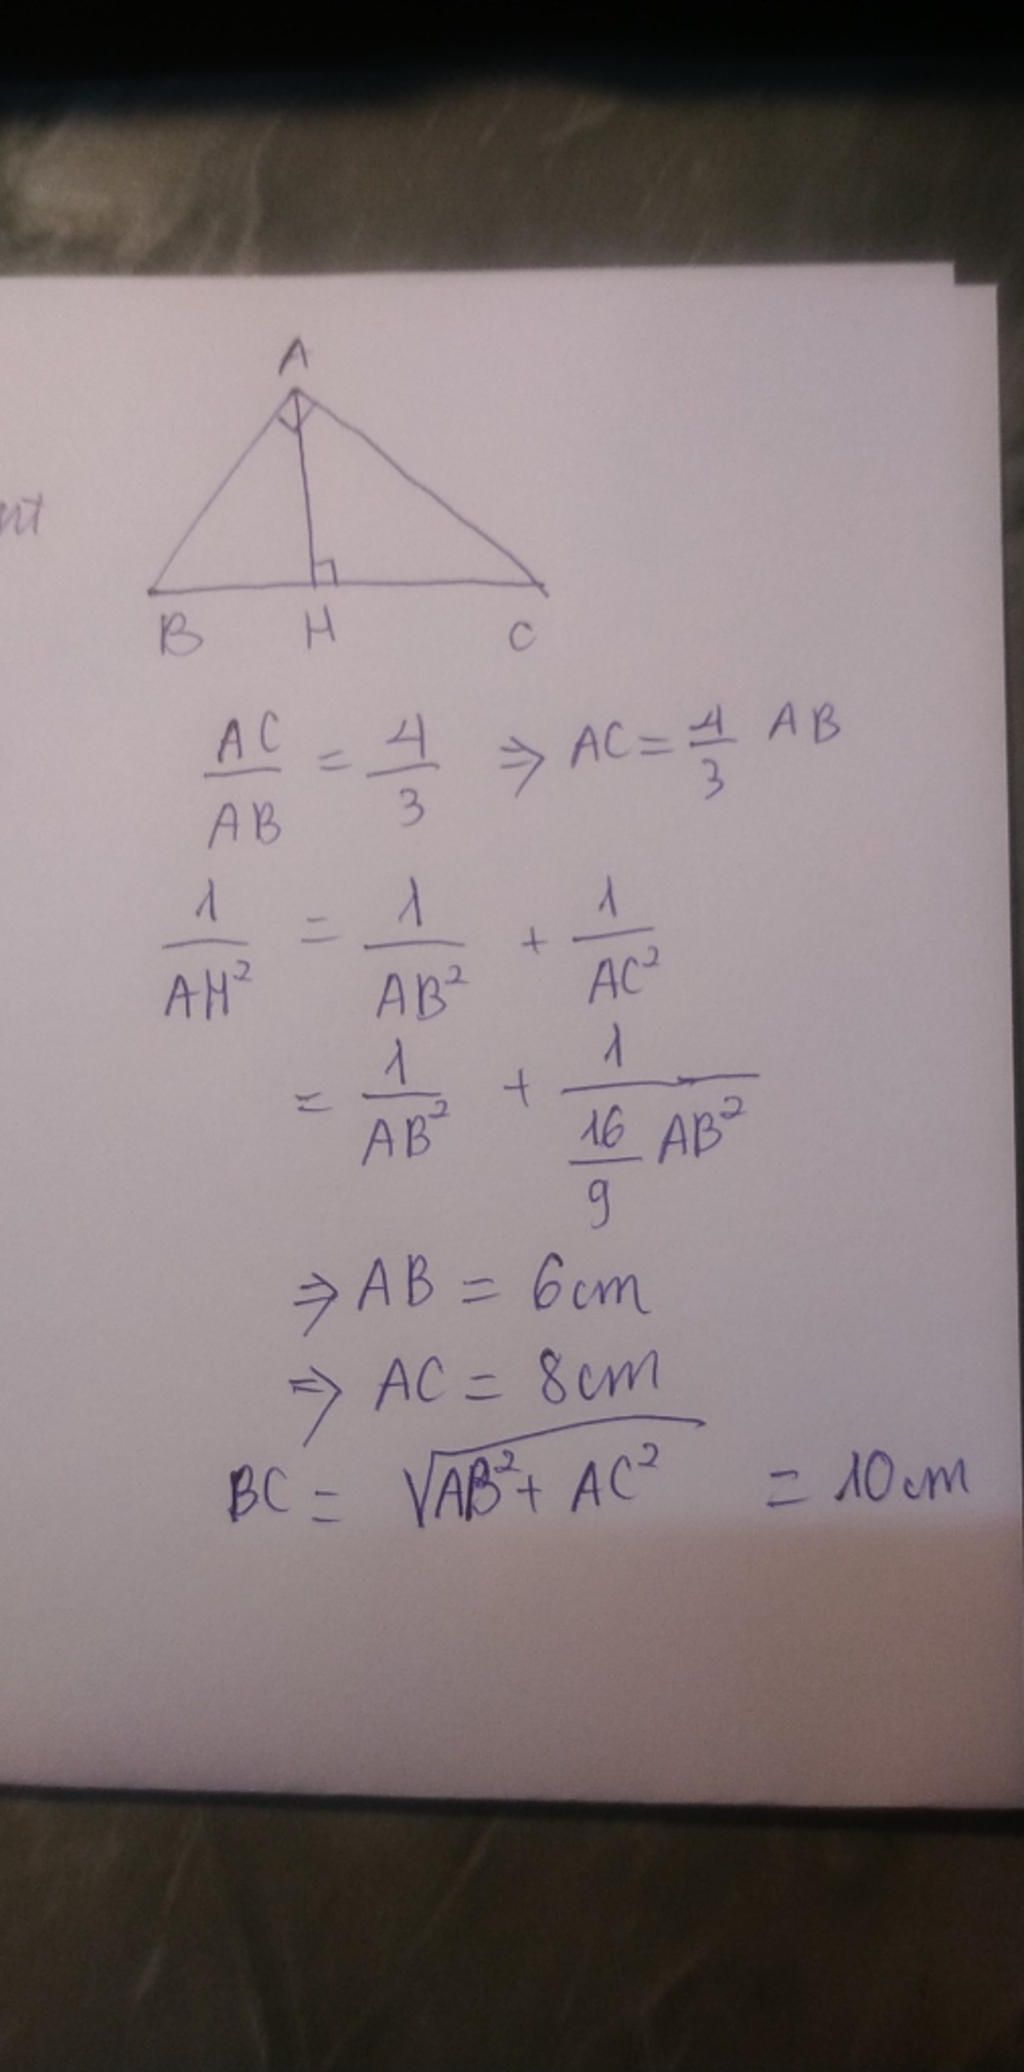 A
B H C
AC/AB = 4/3 ⇒ AC = 4/3 AB
1/AH² = 1/AB² + 1/AC²
= 1/AB² + 1/(16/9 AB²)
⇒ AB = 6cm
⇒ AC = 8cm
BC = √(AB² + AC²) = 10cm